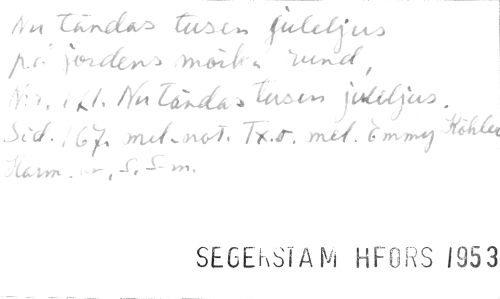 Nu tändas tusen juleljus
på jordens mörka rund,
Nr. 121. Nu tändas tusen juleljus.
Sid. 167. mel-not. Tx.o. mel. Emmy Köhler
Harm. S. S-m.
SEGERSTAM HFORS 1953